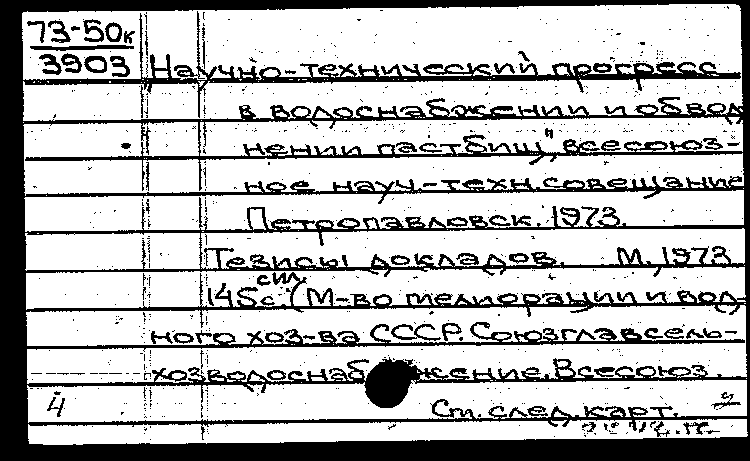 73-50к
3903
Научно-технический прогресс
в водоснабжении и обвод
нении пастбищ", всесоюз-
ное науч.-техн. совещание
Петропавловск. 1973.
Тезисы докладов. М., 1973
145с. с ил. (М-во мелиорации и вод-
ного хоз-ва СССР. Союзглавсель-
хозводоснабжение. Всесоюз.
4
См. след. карт.